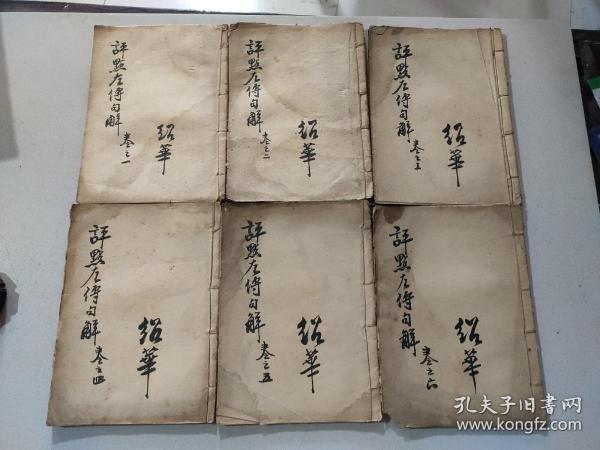 評點左傳句解
卷之一
紹華
評點左傳句解
卷之二
紹華
評點左傳句解
卷之三
紹華
評點左傳句解
卷之四
紹華
評點左傳句解
卷之五
紹華
評點左傳句解
卷之六
紹華
孔夫子旧书网
www.kongfz.com